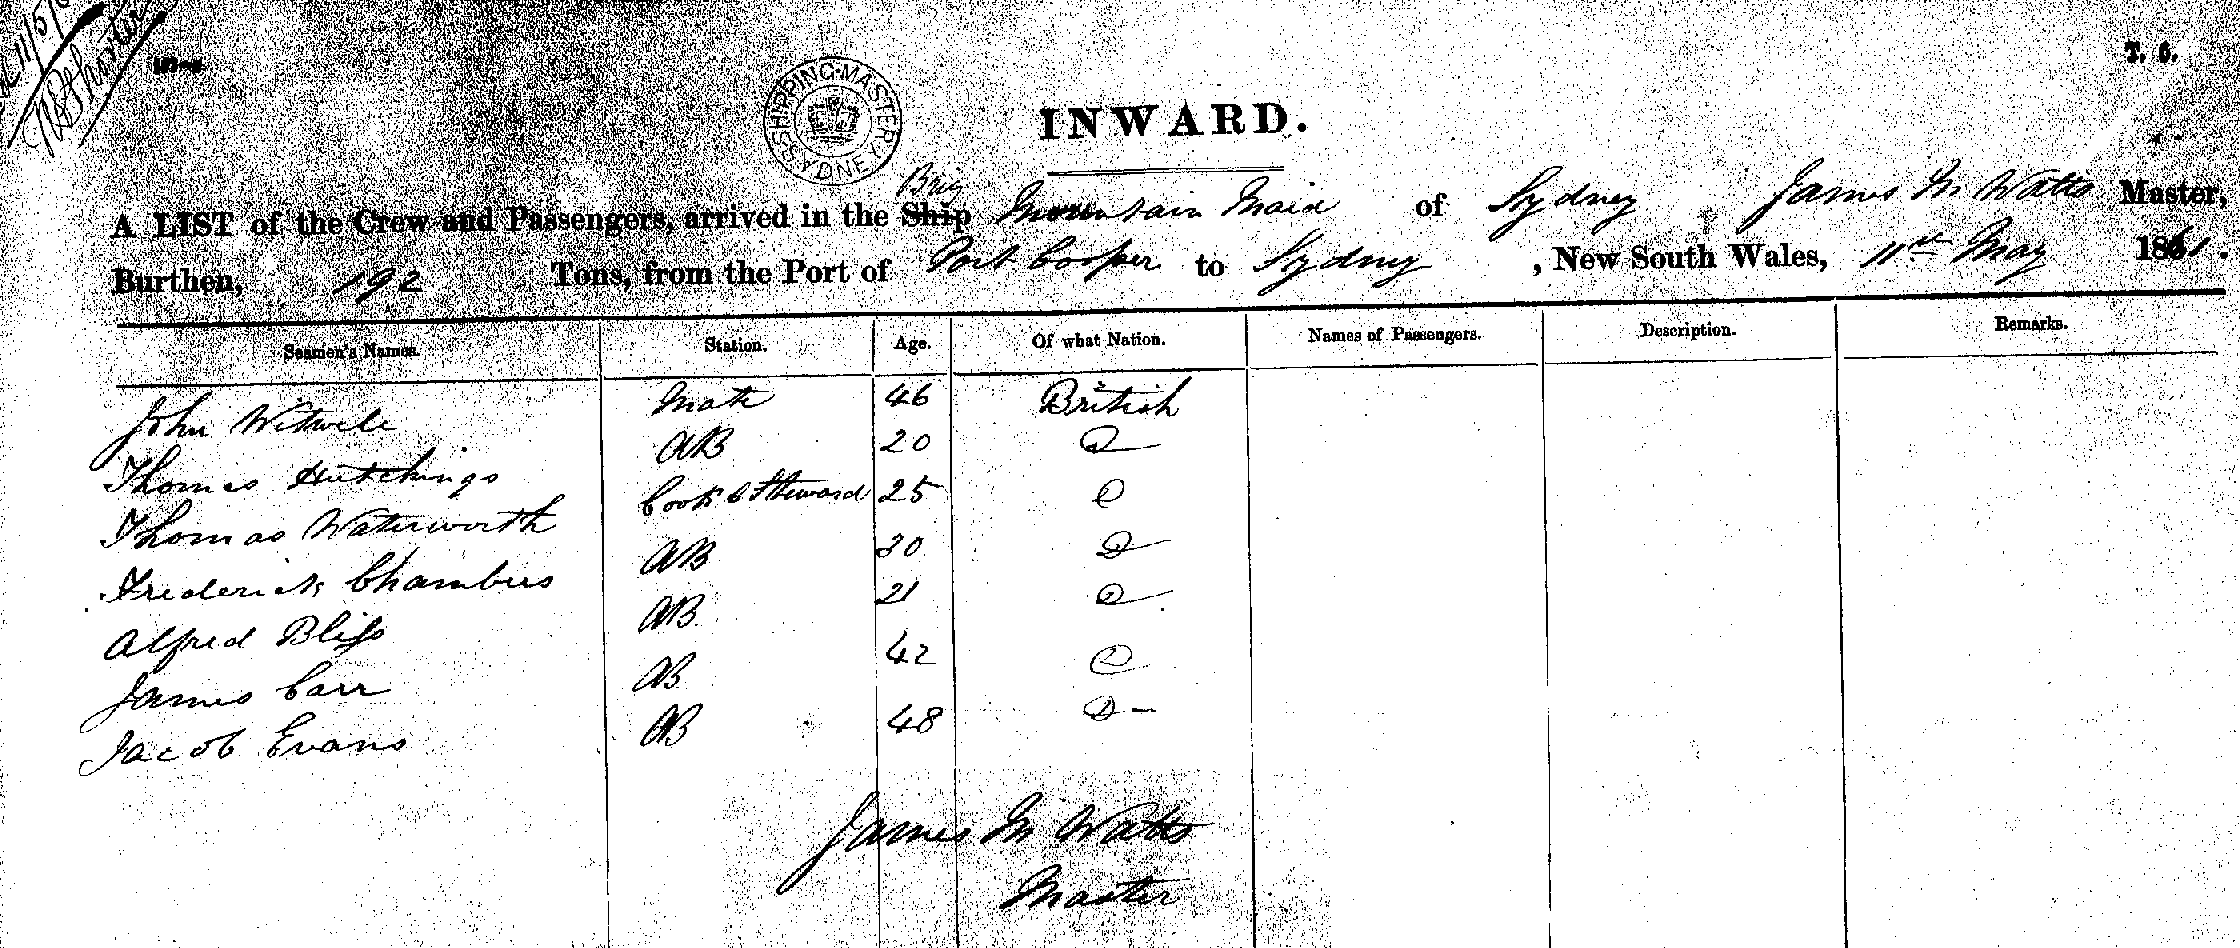 T. 6.
SHIPPING MASTER SYDNEY
INWARD.
Brig
A LIST of the Crew and Passengers, arrived in the Ship Mountain Maid of Sydney James M Watts Master,
Burthen, 192 Tons, from the Port of Port Cooper to Sydney , New South Wales, 11th May 1861.
Seamen's Names. Station. Age. Of what Nation. Names of Passengers. Description. Remarks.
John Mate 46 British
Thomas Hutchings AB 20 Do
Thomas Waterworth Cook & Steward 25 Do
Frederick Chambers AB 30 Do
Alfred Bliss AB 21 Do
James Carr AB 42 Do
Jacob Evans AB 48 Do
James M Watts
Master